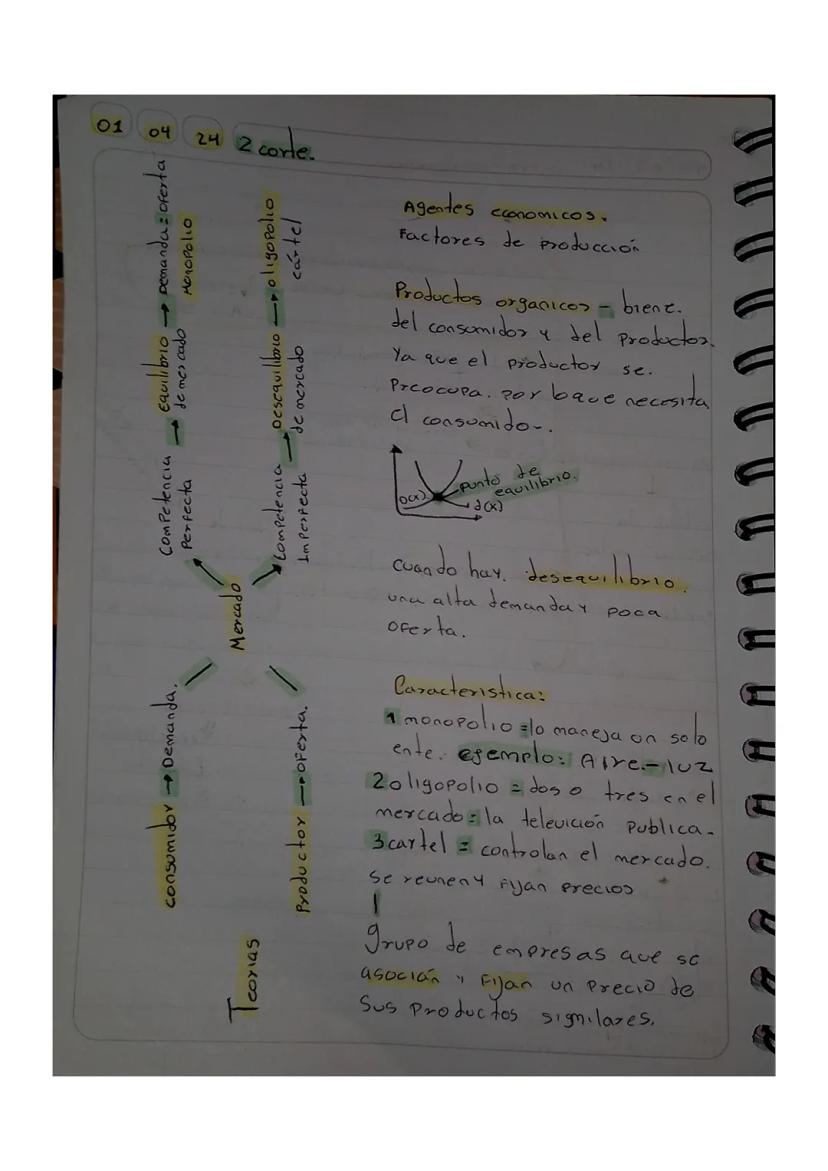 01 04 24 2 corte.
Teorias
consumidor → Demanda.
Productor → oferta.
Mercado
Competencia
Perfecta
→ Equilibrio
de mercado
→ Demanda = oferta
Monopolio
Competencia
Imperfecta
→ Desequilibrio
de mercado
→ oligopolio
cártel
Agentes economicos.
Factores de Producción
Productos organicos - biene.
del consumidor y del productor.
Ya que el productor se.
Preocupa. por
necesita
el consumidor.
punto de
equilibrio.
o(x)
d(x)
cuando hay. desequilibrio.
una alta demanda y poca
oferta.
Caracteristica:
1 monopolio = lo maneja un solo
ente. ejemplo: Aire - luz
2 oligopolio = dos o tres en el
mercado = la televición publica -
3 cartel = controlan el mercado.
se reunen y Fijan precios
grupo de empresas que se
asocián y Fijan un Precio de
Sus Productos signilares.